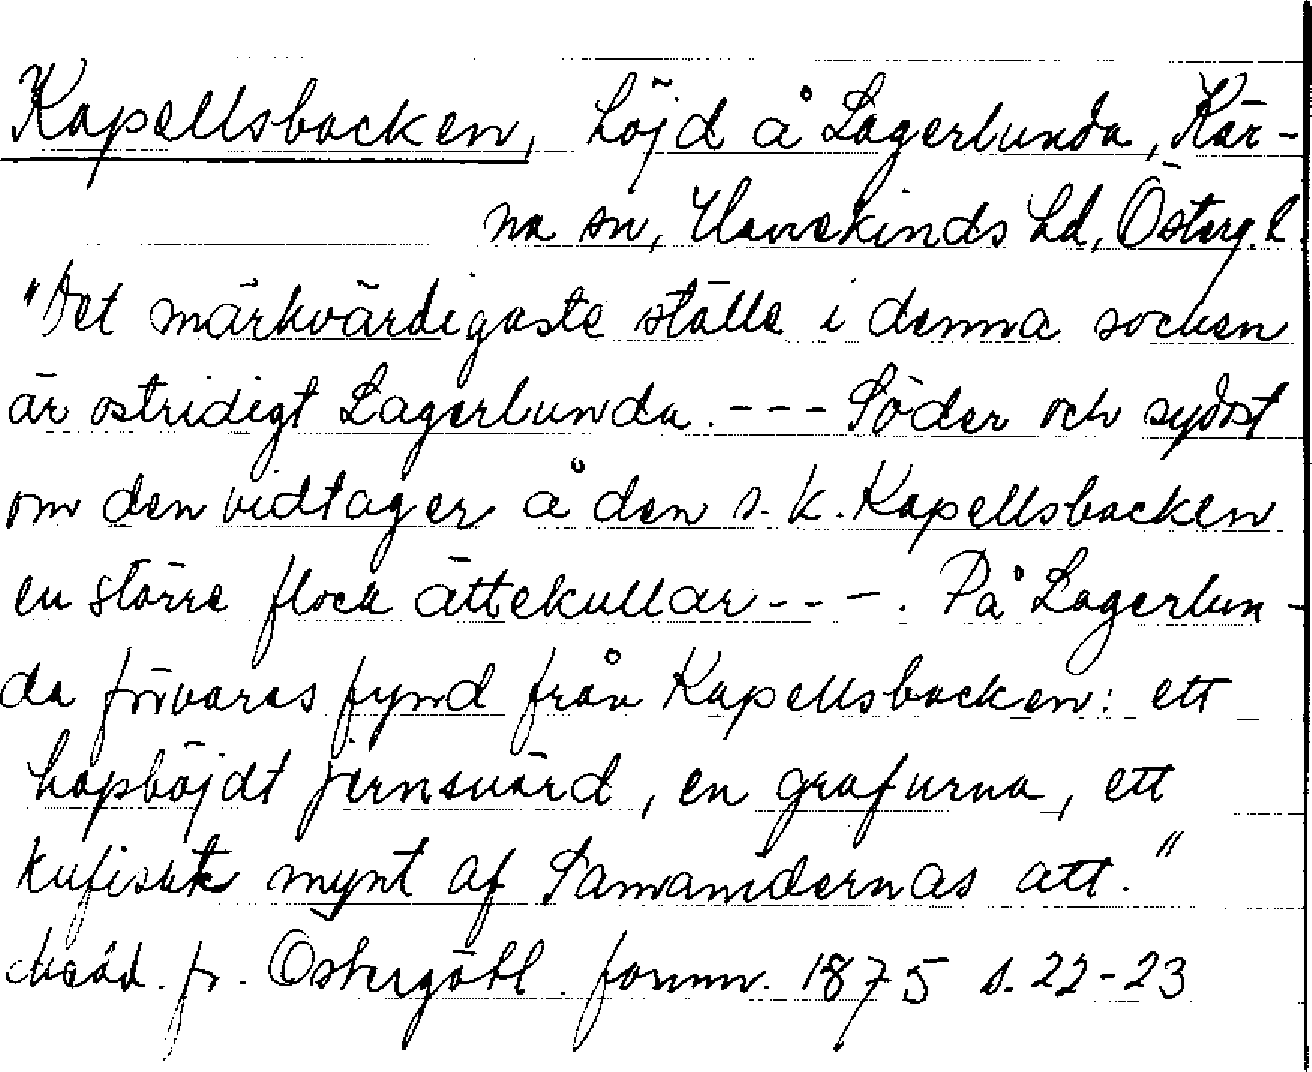 Kapellsbacken, höjd å Lagerlunda, Kär-
na sn, Hanekinds hd, Österg. l.
"Det märkvärdigaste ställe i denna socken
är ostridigt Lagerlunda. --- Söder och sydost
om den vidtager å den s. k. Kapellsbacken
en större flock ättekullar ---. På Lagerlun-
da förvaras fynd från Kapellsbacken: ett
hopböjdt jernsvärd, en grafurna, ett
kufiskt mynt af Samanidernas ätt."
Medd. fr. Östergötl. fornm. 1875 s. 22-23